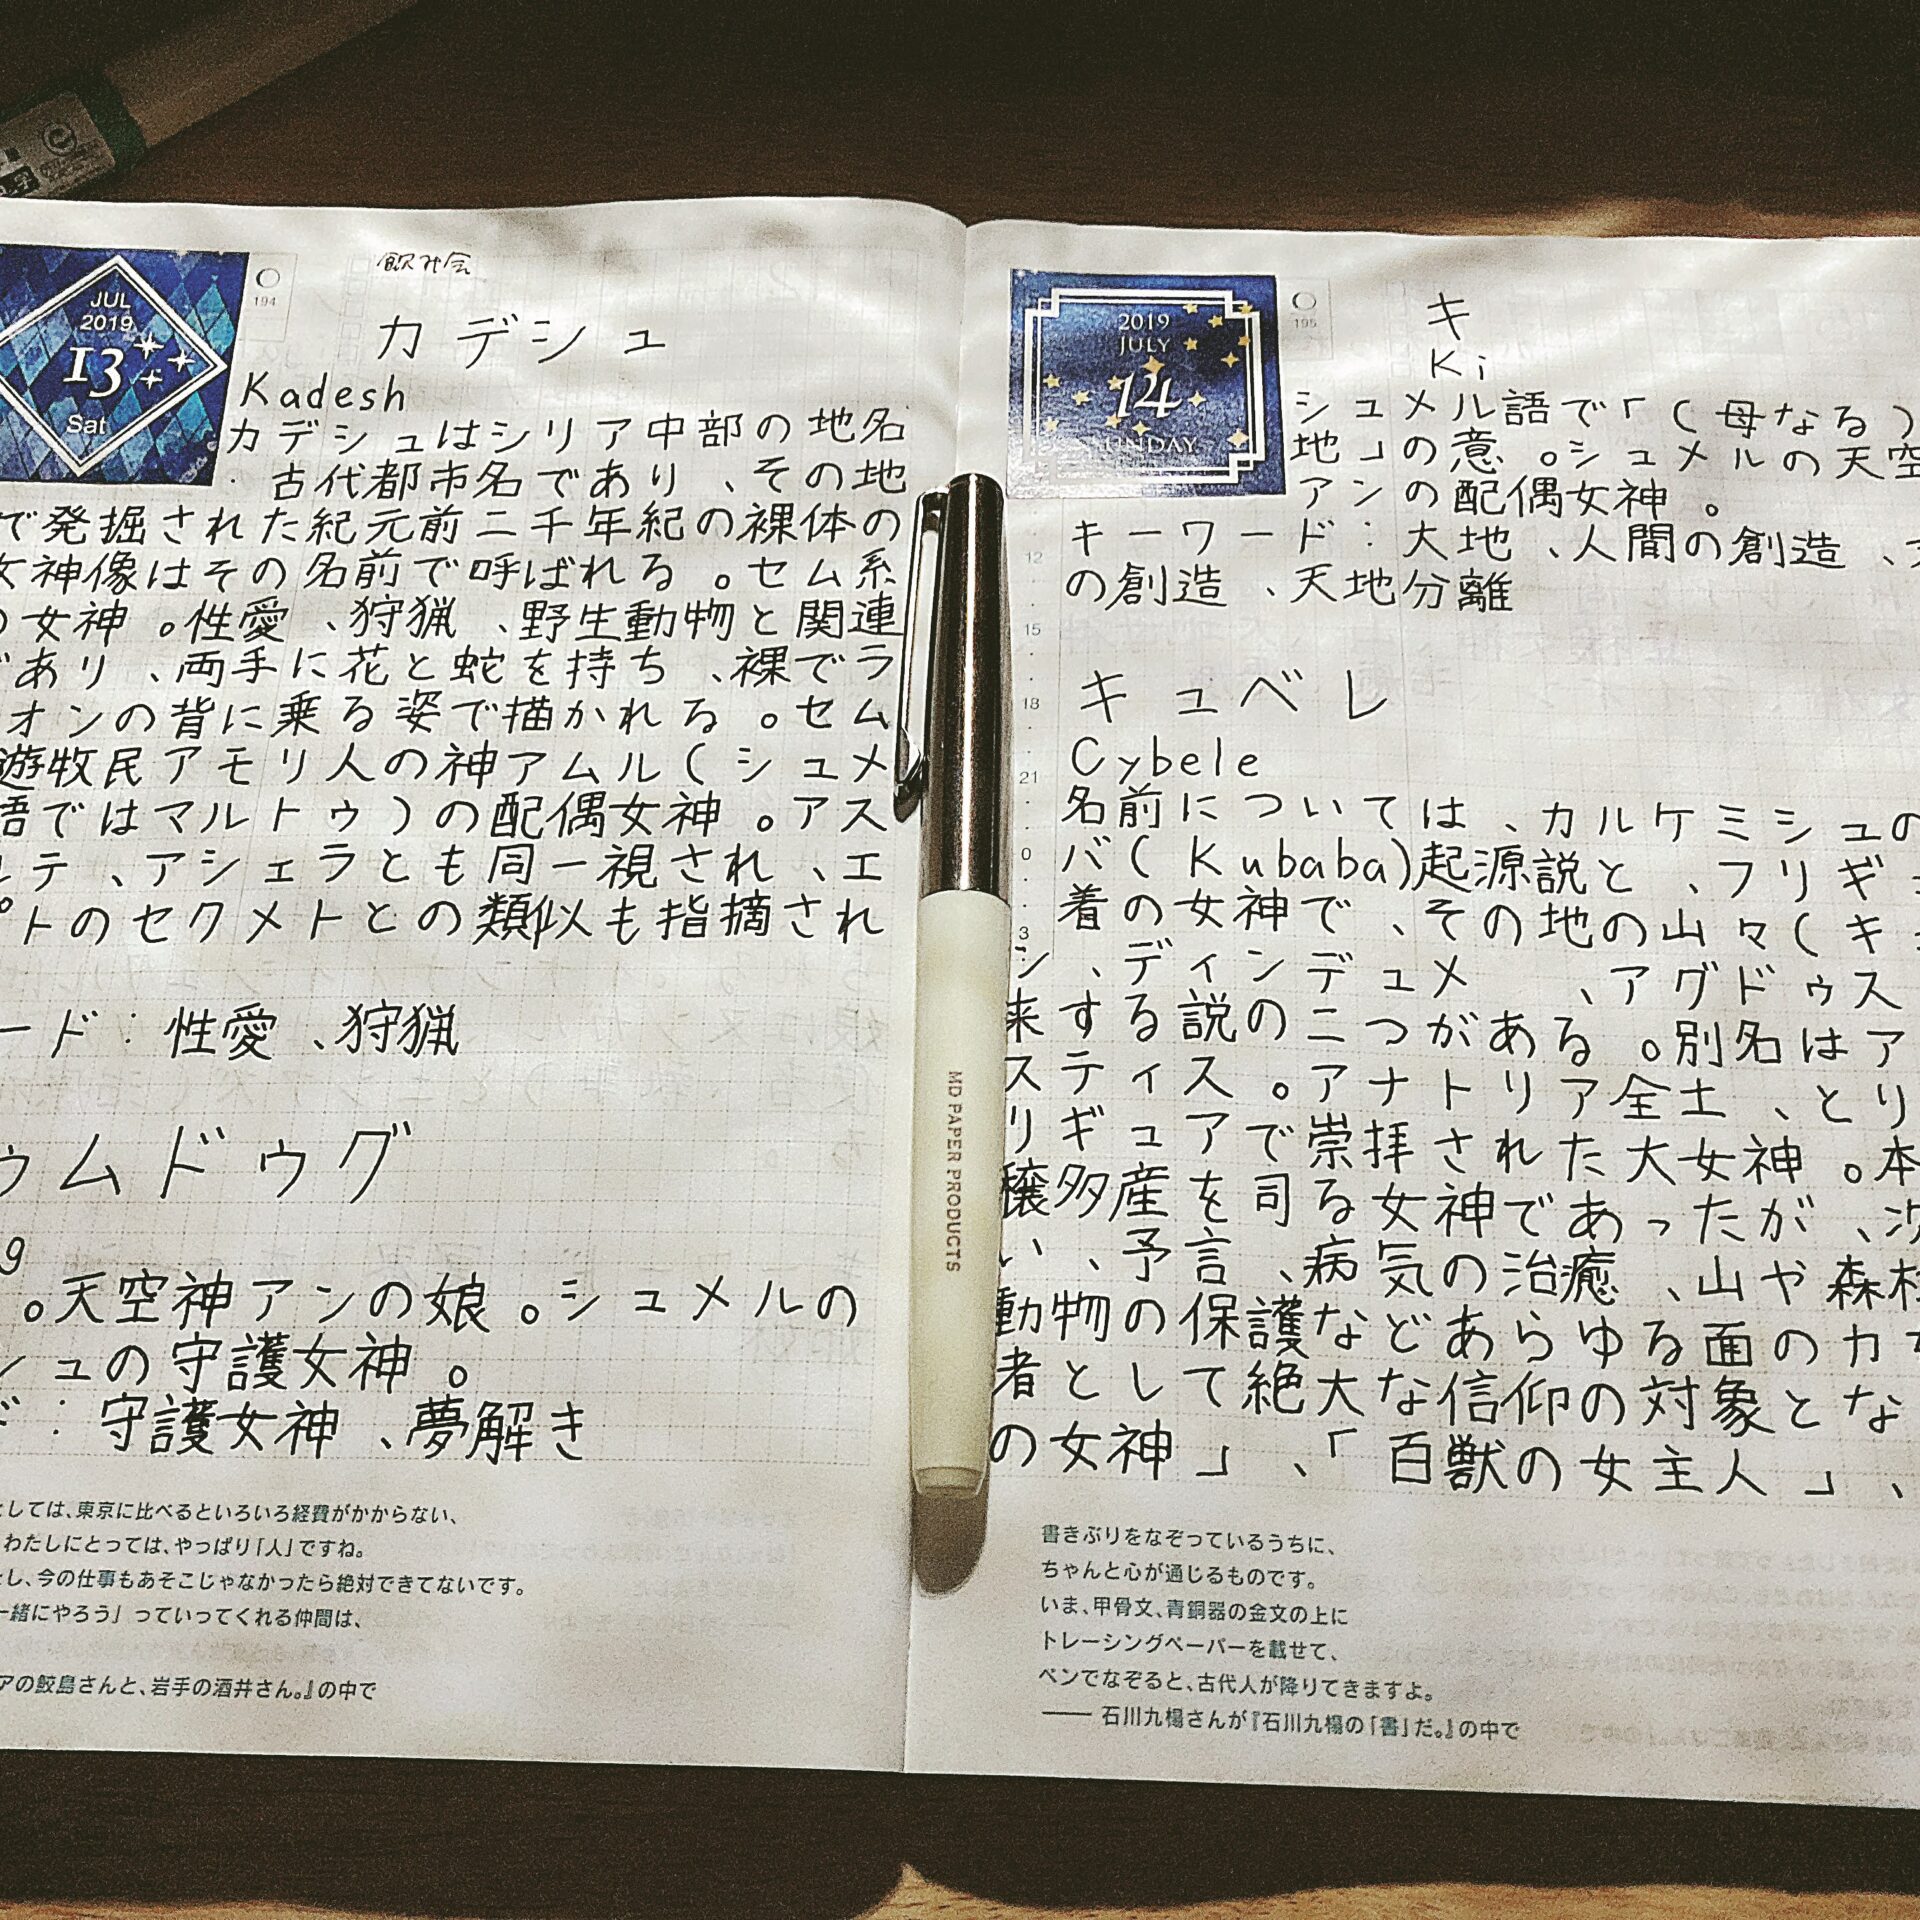 JUL
2019
13
Sat
194
飲み会
カデシュ
Kadesh
カデシュはシリア中部の地名
・古代都市名であり、その地
で発掘された紀元前二千年紀の裸体の
女神像はその名前で呼ばれる。セム系
の女神。性愛、狩猟、野生動物と関連
であり、両手に花と蛇を持ち、裸でラ
オンの背に乗る姿で描かれる。セム
遊牧民アモリ人の神アムル(シュメ
語ではマルトゥ)の配偶女神。アス
ルテ、アシェラとも同一視され、エ
プトのセクメトとの類似も指摘され
ード:性愛、狩猟
ゥムドゥグ
g
。天空神アンの娘。シュメルの
シュの守護女神。
ド:守護女神、夢解き
としては、東京に比べるといろいろ経費がかからない、
わたしにとっては、やっぱり「人」ですね。
とし、今の仕事もあそこじゃなかったら絶対できてないです。
一緒にやろう」っていってくれる仲間は、
アの鮫島さんと、岩手の酒井さん。』の中で
2019
JULY
14
SUNDAY
195
キ
Ki
シュメル語で「(母なる)
地」の意。シュメルの天空
アンの配偶女神。
キーワード:大地、人間の創造、
の創造、天地分離
キュベレ
Cybele
名前については、カルケミシュの
バ(Kubaba)起源説と、フリギ
着の女神で、その地の山々(キ
ン、ディンデュメ、アグドゥス
来する説の二つがある。別名はア
スティス。アナトリア全土、とり
リギュアで崇拝された大女神。本
穣多産を司る女神であったが、次
い、予言、病気の治癒、山や森林
動物の保護などあらゆる面の力を
者として絶大な信仰の対象とな
の女神」、「百獣の女主人」、
12
15
18
21
0
3
MD PAPER PRODUCTS
書きぶりをなぞっているうちに、
ちゃんと心が通じるものです。
いま、甲骨文、青銅器の金文の上に
トレーシングペーパーを載せて、
ペンでなぞると、古代人が降りてきますよ。
── 石川九楊さんが『石川九楊の「書」だ。』の中で